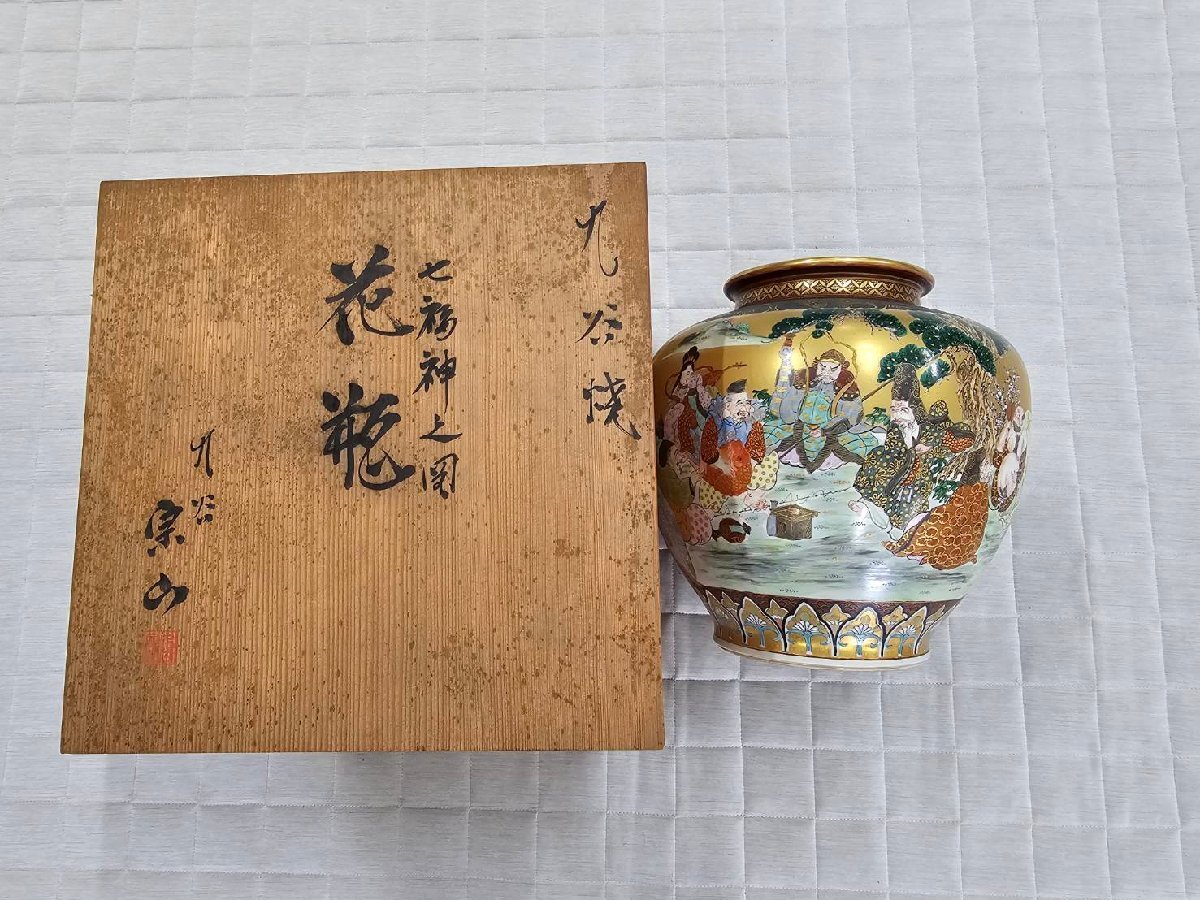 九谷焼
七福神之図
花瓶
九谷
宗山